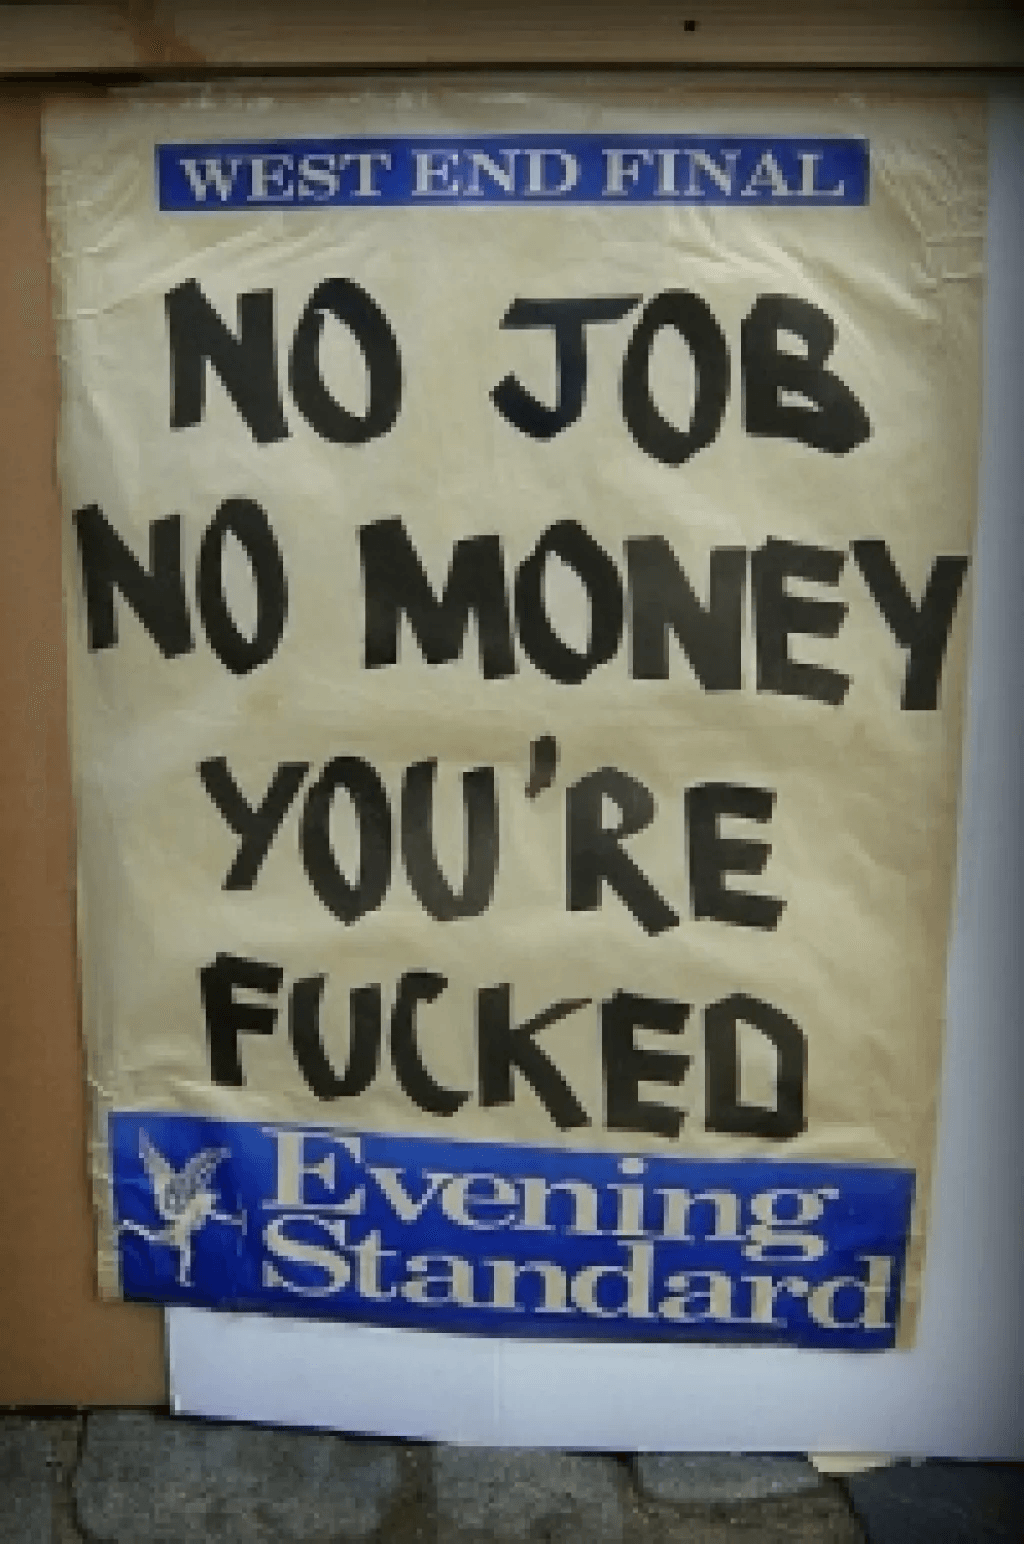 WEST END FINAL
NO JOB
NO MONEY
YOU'RE
FUCKED
Evening
Standard